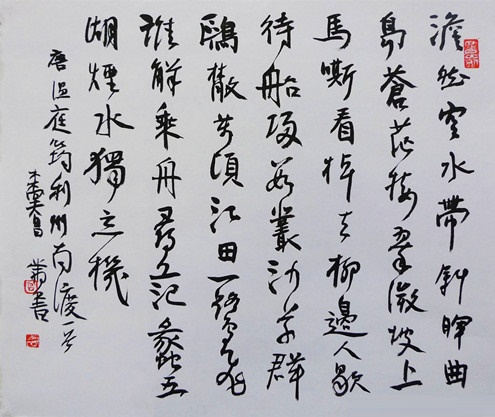 澹然空水帶斜暉曲
島蒼茫接翠微波上
馬嘶看棹去柳邊人歇
待船歸數叢沙草群
鷗散萬頃江田一鷺飛
誰解乘舟尋范蠡五
湖煙水獨忘機
唐溫庭筠利州南渡一首
昌書